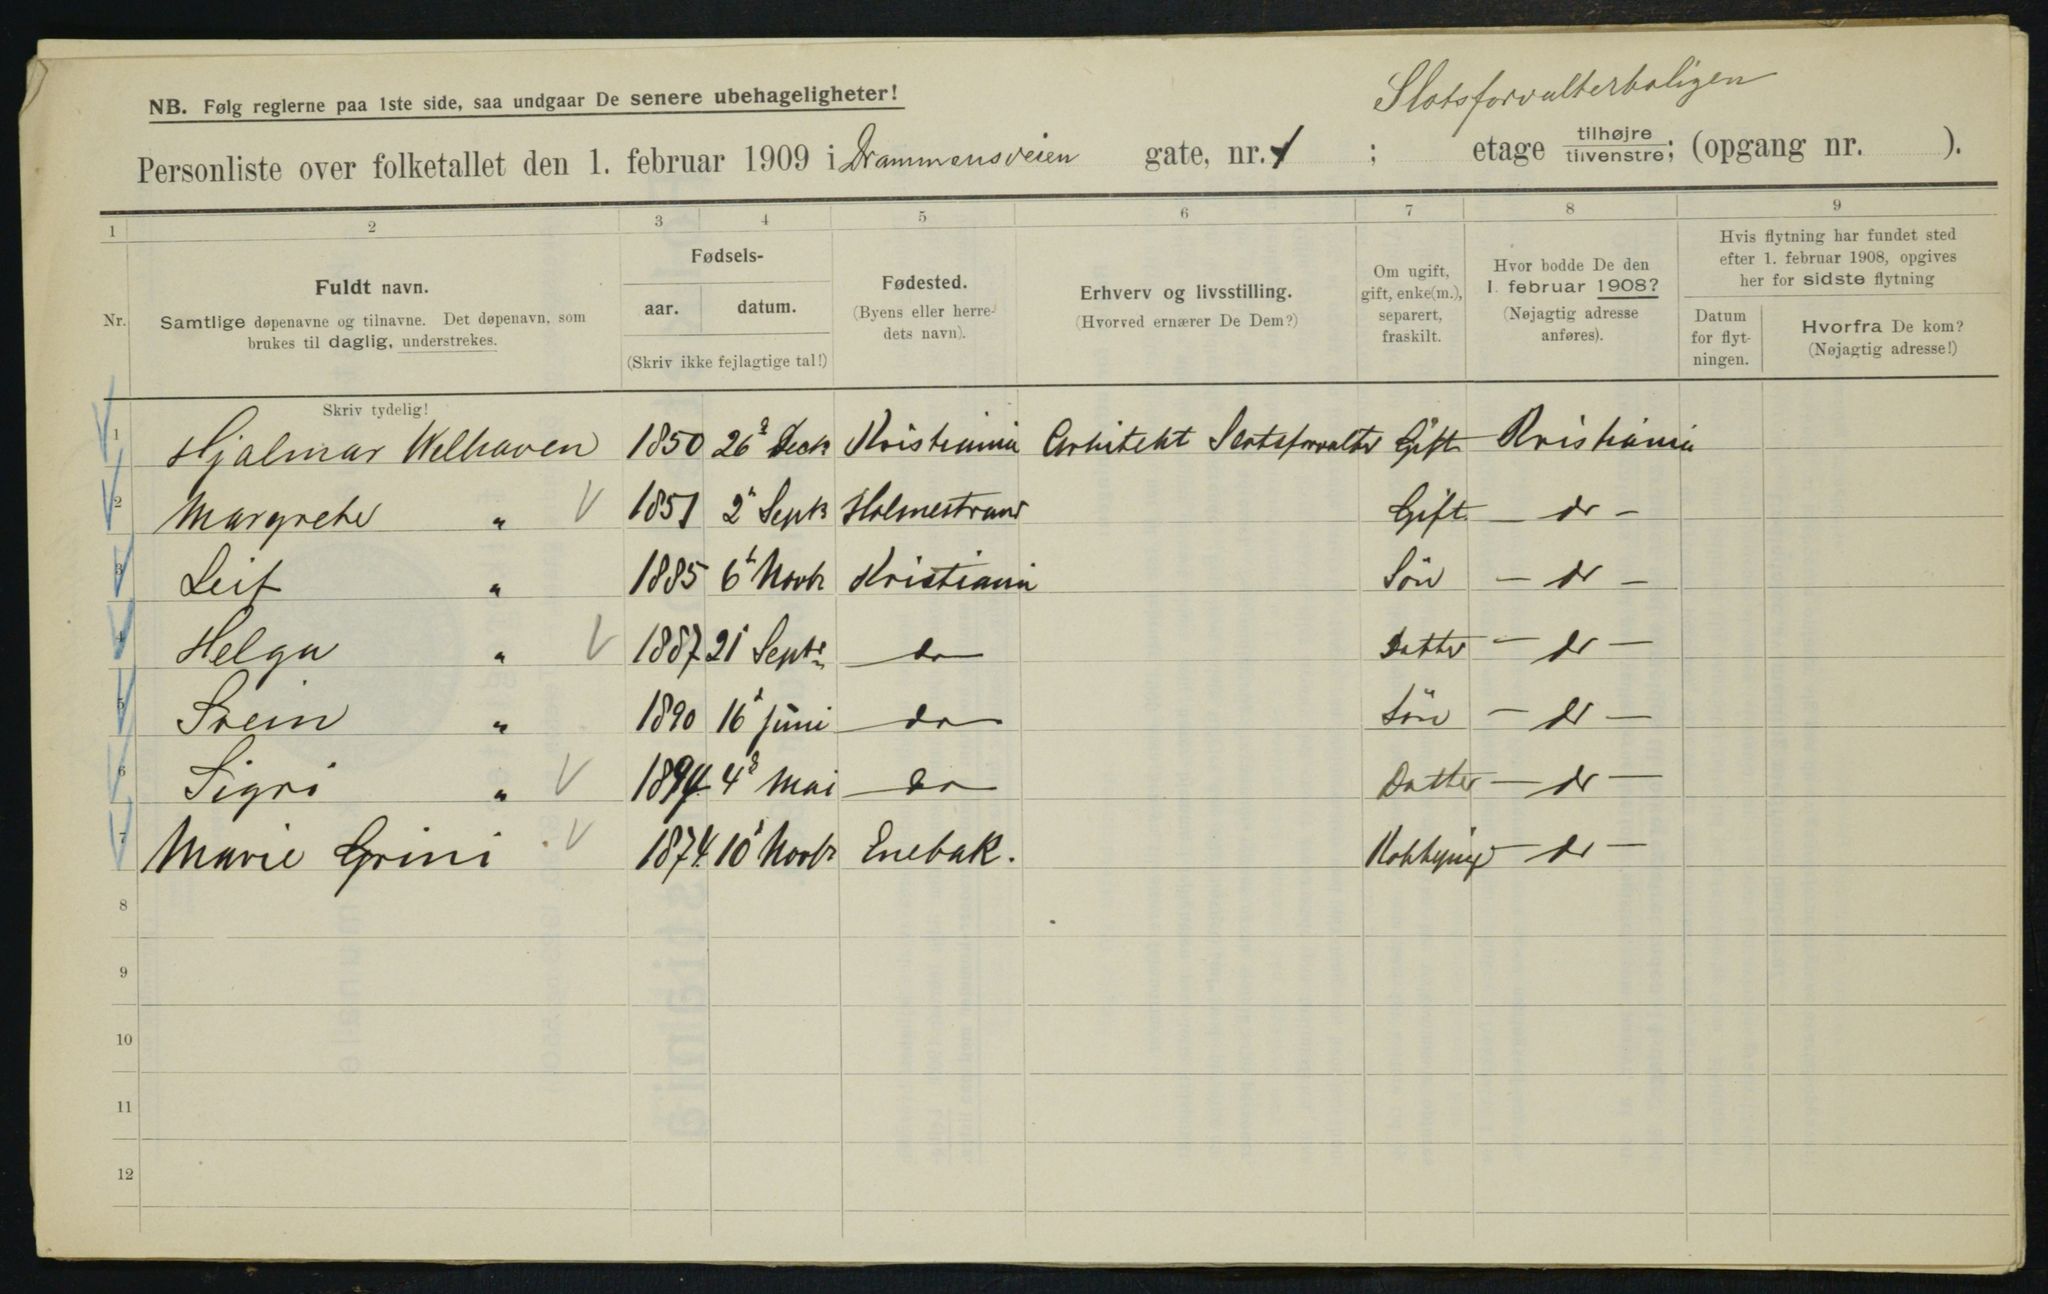 Slotsforvalterboligen
NB. Følg reglerne paa 1ste side, saa undgaar De senere ubehageligheter!
Personliste over folketallet den 1. februar 1909 i Drammensveien gate, nr. 1 ; etage tilhøjre/tilvenstre; (opgang nr. ).
1 2 3 4 5 6 7 8 9
Nr.
Fuldt navn.
Samtlige døpenavne og tilnavne. Det døpenavn, som
brukes til daglig, understrekes.
Skriv tydelig!
Fødsels-
aar. datum.
(Skriv ikke fejlagtige tal!)
Fødested.
(Byens eller herre-
dets navn).
Erhverv og livsstilling.
(Hvorved ernærer De Dem?)
Om ugift,
gift, enke(m.),
separert,
fraskilt.
Hvor bodde De den
1. februar 1908?
(Nøjagtig adresse
anføres).
Hvis flytning har fundet sted
efter 1. februar 1908, opgives
her for sidste flytning
Datum
for flyt-
ningen.
Hvorfra De kom?
(Nøjagtig adresse!)
1 Hjalmar Welhaven 1850 26 Decb Kristiania Arkitekt Slotsforvalter Gift Kristiania
2 Margrethe " 1851 2 Septb Holmestrand Gift — do —
3 Leif " 1885 6 Novbr Kristiania Sön — do —
4 Helga " 1887 21 Septr — do — Datter — do —
5 Svein " 1890 16 juni — do — Sön — do —
6 Sigri " 1894 4 Mai — do — Datter — do —
7 Marie Grini 1874 10 Novbr Enebak. — do —
8
9
10
11
12